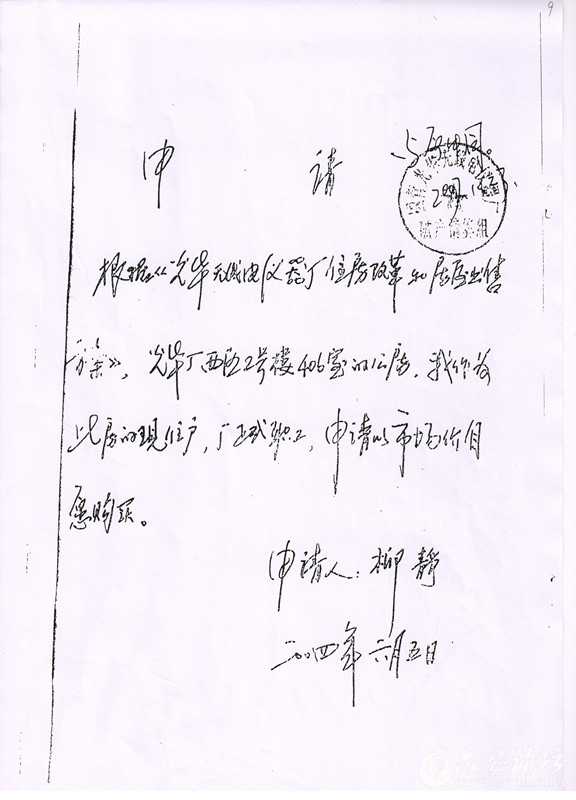 9
申 请
上房出售。
破产清算组
根据《光华无线电仪器厂住房改革和居房出售
方案》，光华厂西区2号楼406室的公房，我作为
此房的现住户，厂正式职工，申请以市场价自
愿购买。
申请人：柳静
二〇〇四年六月五日